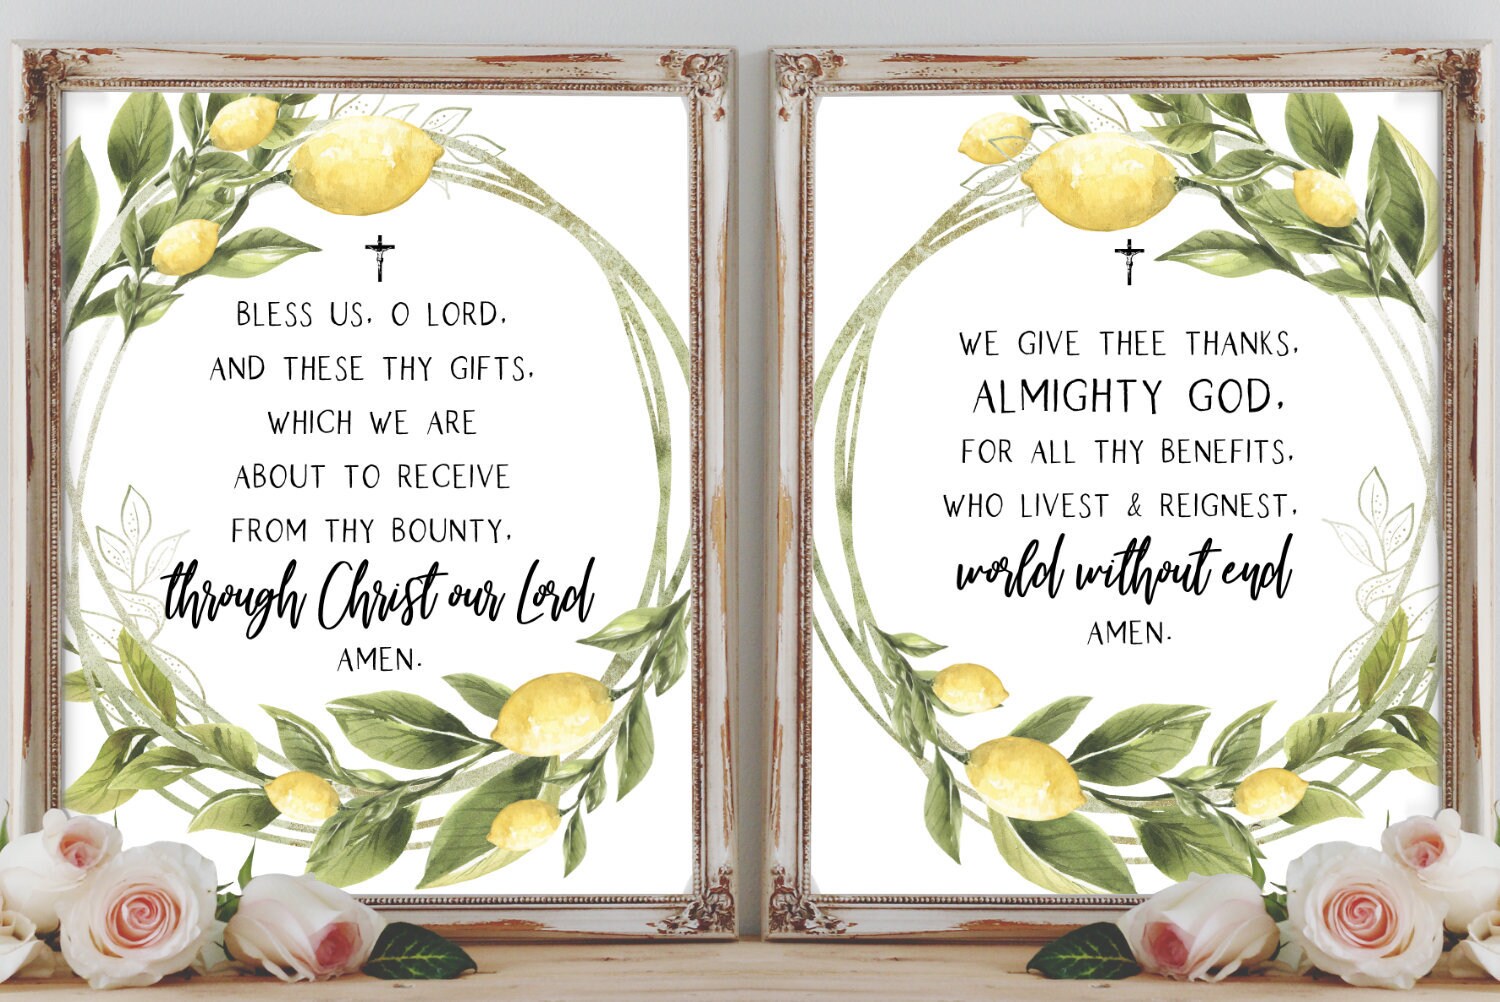 BLESS US, O LORD,
AND THESE THY GIFTS,
WHICH WE ARE
ABOUT TO RECEIVE
FROM THY BOUNTY,
through Christ our Lord
AMEN.
WE GIVE THEE THANKS,
ALMIGHTY GOD,
FOR ALL THY BENEFITS,
WHO LIVEST & REIGNEST,
world without end
AMEN.